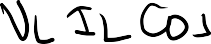 VL IL COJ